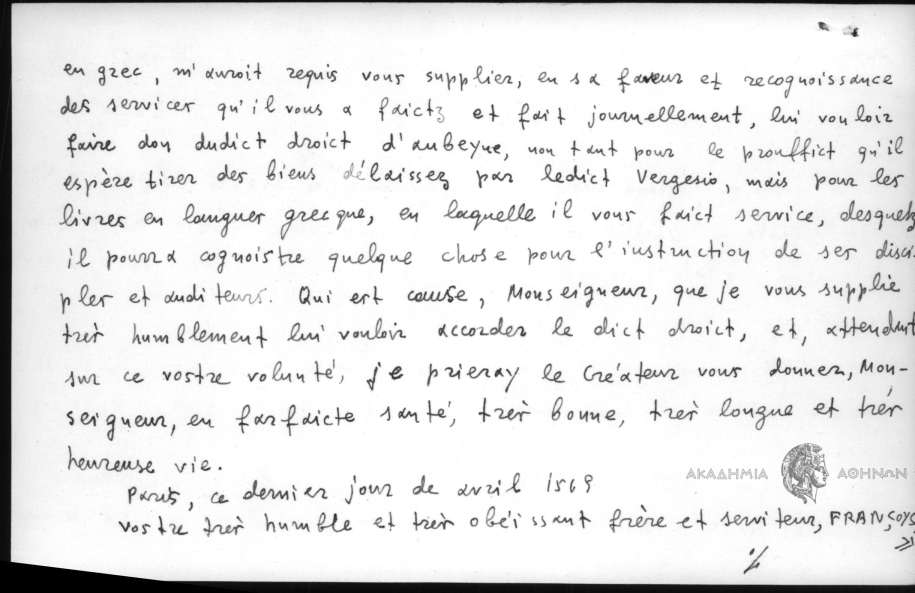 en grec, m'auroit requis vous supplier, en sa faveur et recognoissance
des services qu'il vous a faictz et fait journellement, lui vouloir
faire don dudict droict d'aubeyne, non tant pour le prouffict qu'il
espère tirer des biens délaissez par ledict Vergesio, mais pour les
livres en langues grecque, en laquelle il vous faict service, desquelz
il pourra cognoistre quelque chose pour l'instruction de ses disci-
ples et auditeurs. Qui est cause, Monseigneur, que je vous supplie
très humblement lui vouloir accorder le dict droict, et, attendant
sur ce vostre volunté, je prieray le Créateur vous donner, Mon-
seigneur, en farfaicte santé, très bonne, très longue et très
heureuse vie.
Paris, ce dernier jour de avril 1569
vostre très humble et très obéissant frère et serviteur, FRANÇOYS
»
ΑΚΑΔΗΜΙΑ ΑΘΗΝΩΝ
·/.